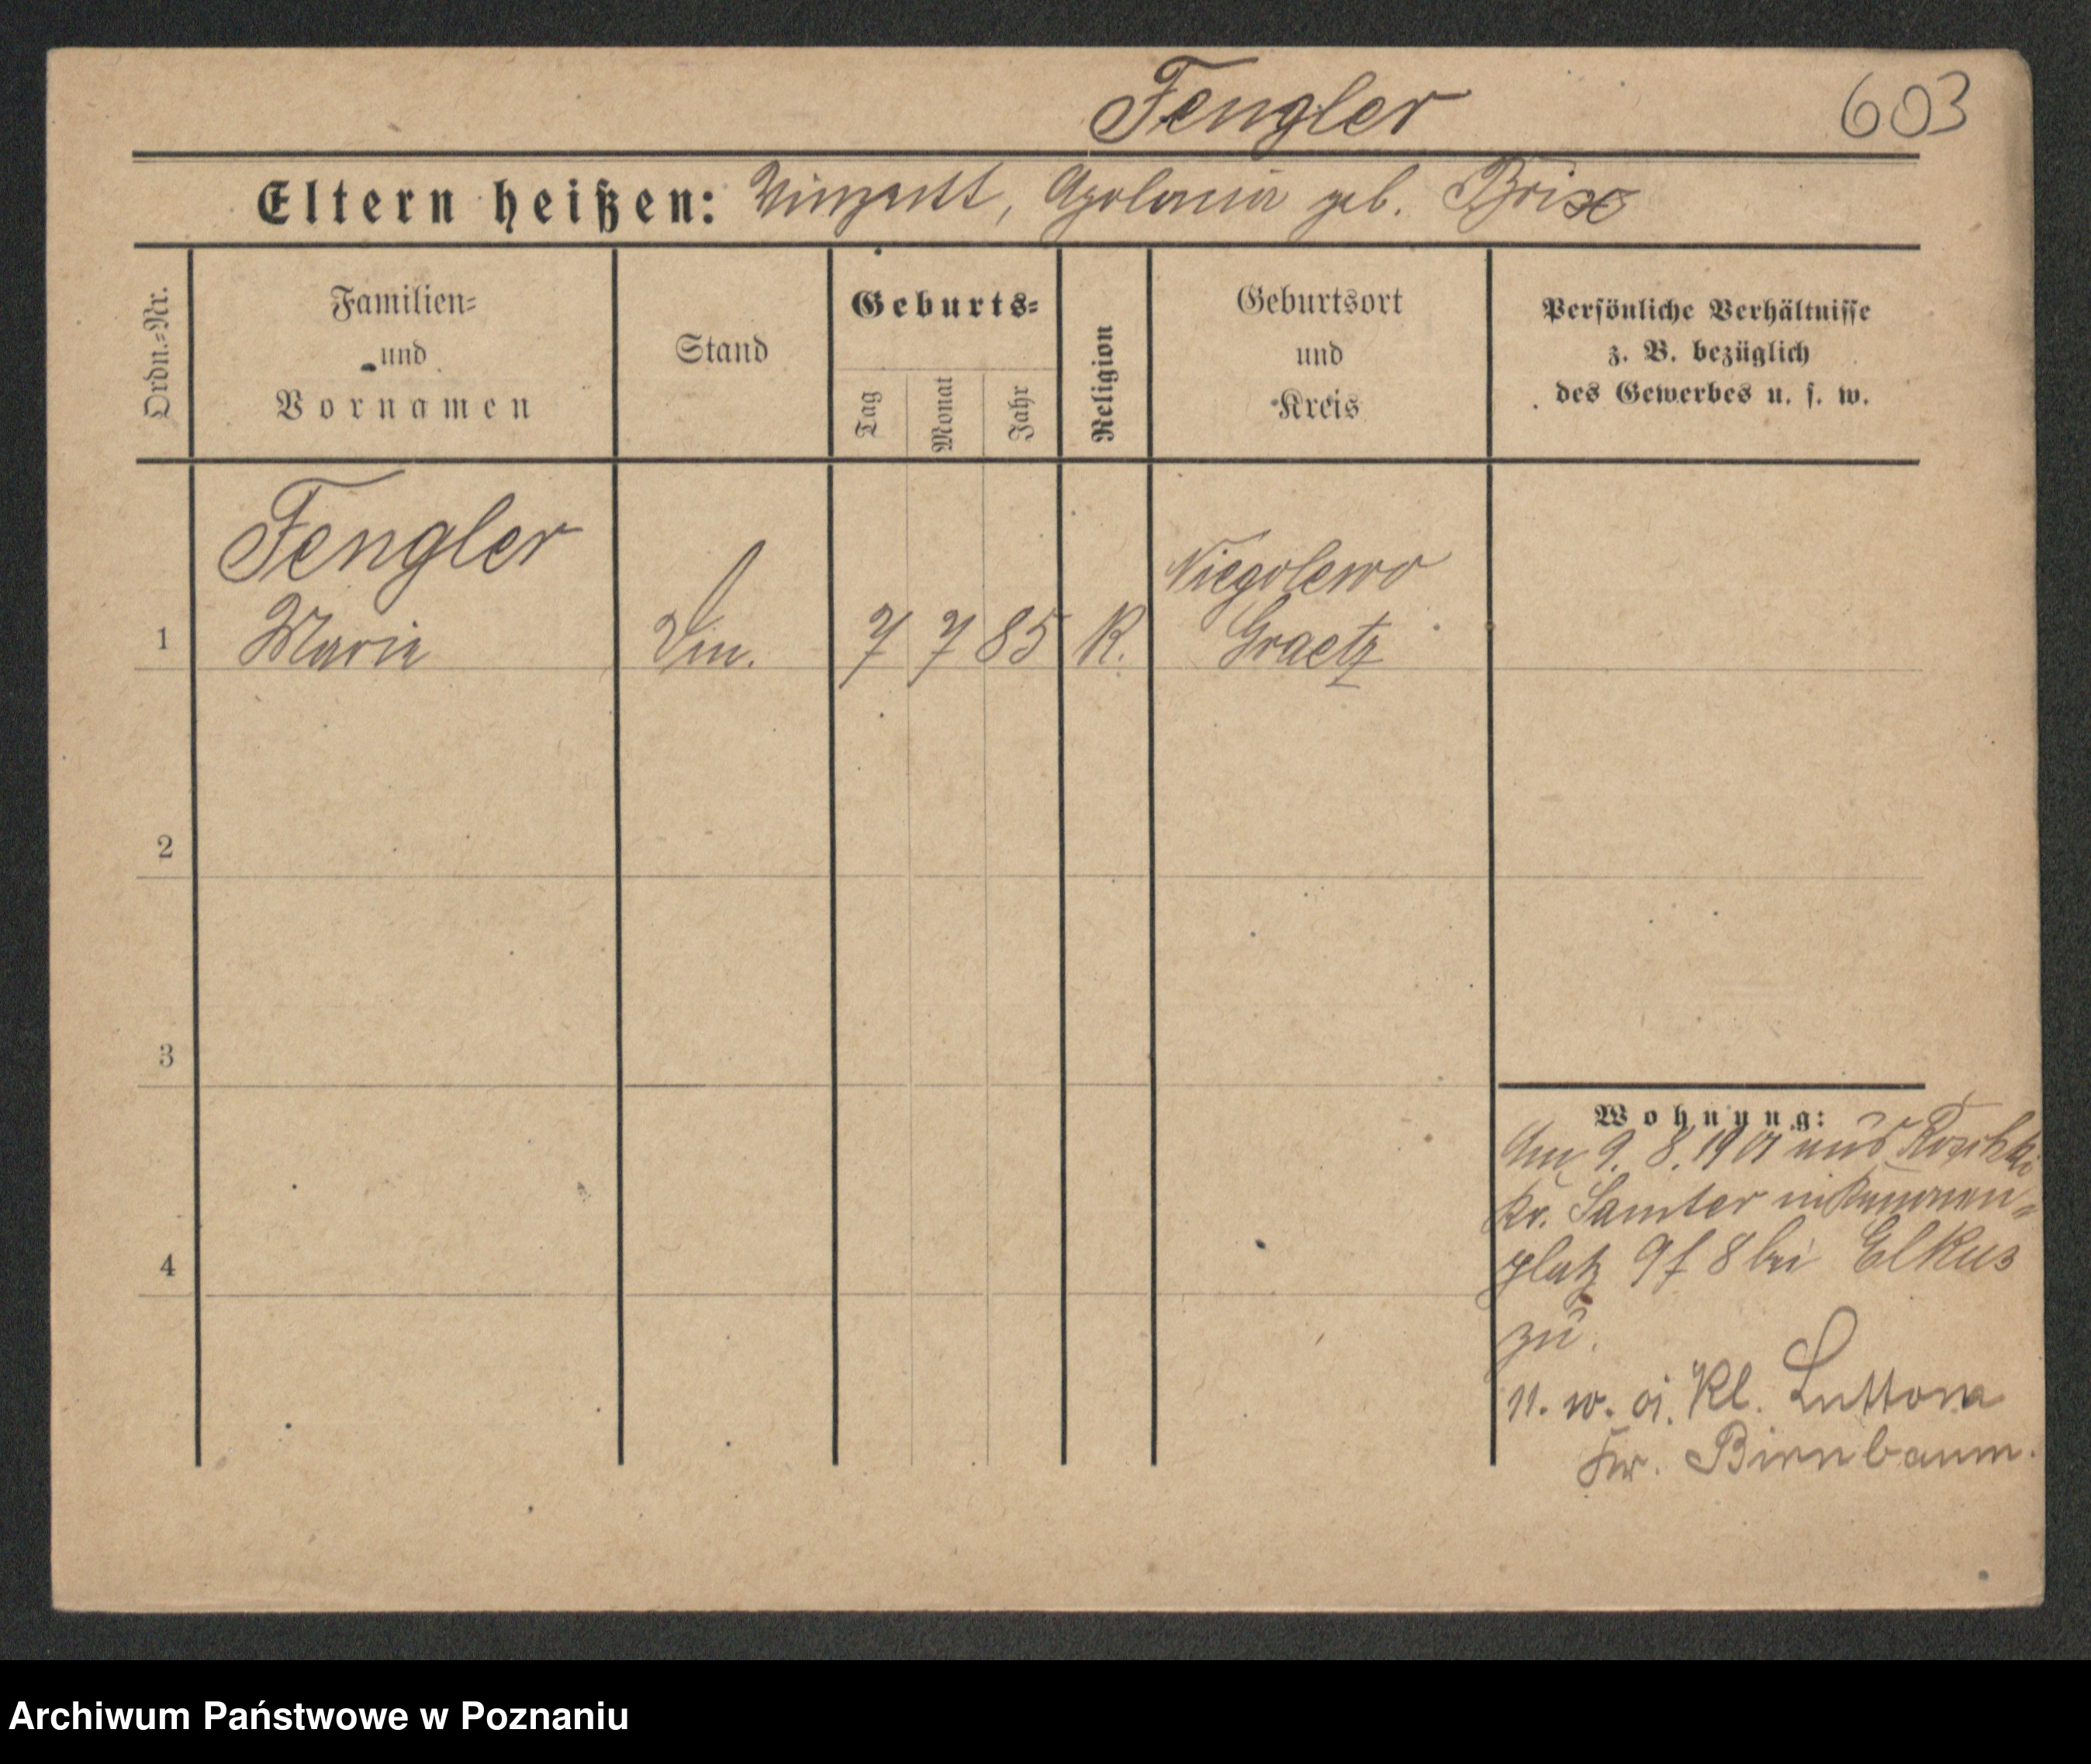 Fengler 603
Eltern heißen: Vinzent, Apolonia geb. Brix
Ordn.=Nr.
Familien=
und
Vornamen
Stand
Geburts=
Tag
Monat
Jahr
Religion
Geburtsort
und
Kreis
Persönliche Verhältnisse
z. B. bezüglich
des Gewerbes u. s. w.
Fengler Niegolewo
1 Maria 7 7 85 K. Graetz
2
3
4
Wohnung:
Am 9. 8. 1901 aus
Kr. Samter
platz 9 f 8 bei Elkus
zu.
n. w. Kl. Luttom
Kr. Birnbaum.
Archiwum Państwowe w Poznaniu